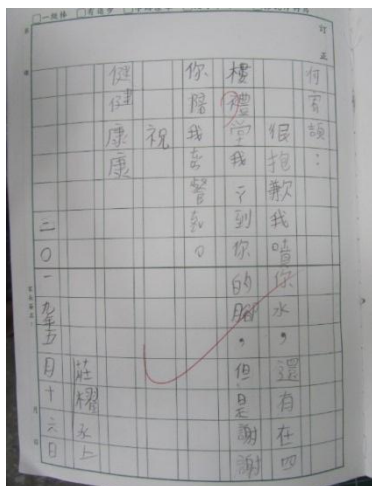 訂正
何宥頡：
很抱歉我噴你水，還有在四
樓禮堂我到你的腳，但是謝
你陪我去醫。
祝
健健康康
莊耀永上
二〇一九年五月十六日